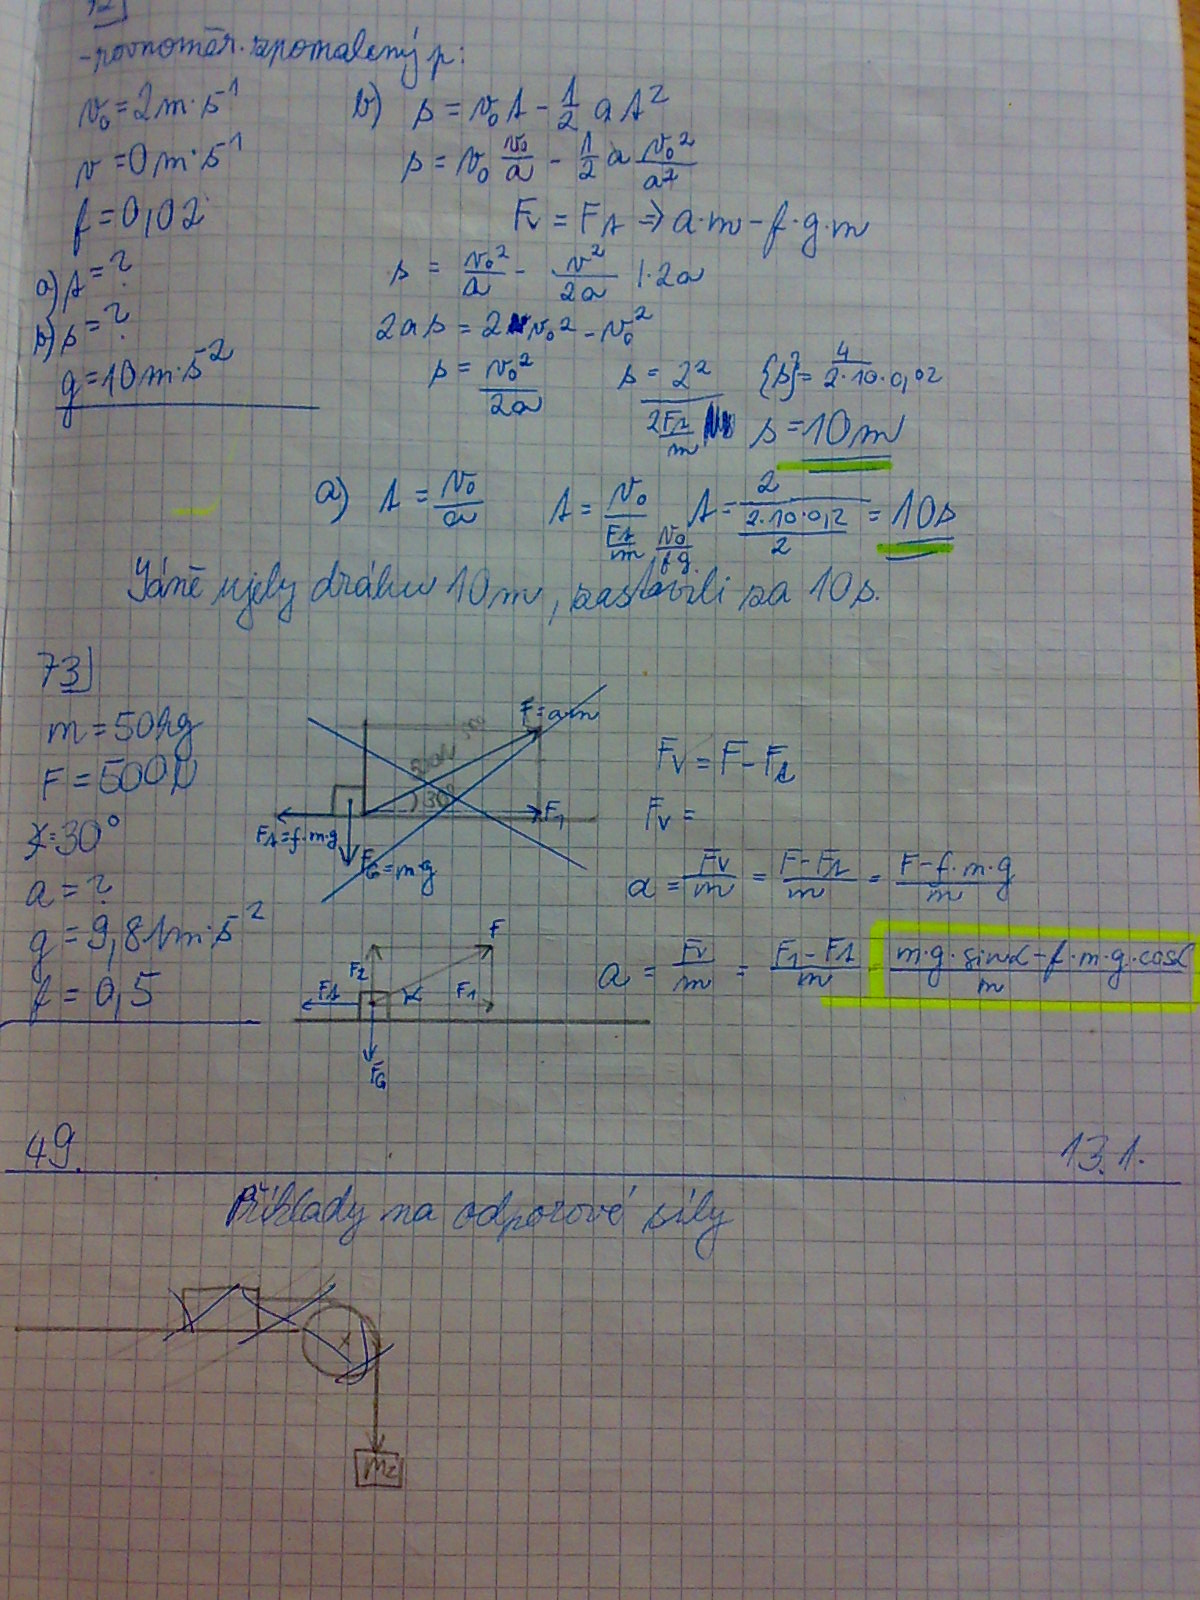 72]
-rovnoměr. zpomalený p:
v₀=2m·s⁻¹
v=0m·s⁻¹
f=0,02
a) t=?
b) s=?
g=10m·s⁻²
b) s = v₀t - 1/2 at²
s = v₀ v₀/a - 1/2 a v₀²/a²
Fv = Ft ⇒ a·m - f·g·m
s = v₀²/a - v²/2a |·2a
2as = 2v₀² - v₀²
s = v₀²/2a s = 2²/(2Ft/m) {s}= 4/(2·10·0,02)
s = 10m
a) t = v₀/a t = v₀/(Ft/m) v₀/fg t = 2/((2·10·0,2)/2) = 10s
Sáně ujely dráhu 10m, zastavili za 10s.
73]
m=50kg
F=500N
∢=30°
a=?
g=9,81m·s⁻²
f=0,5
F=a·m
500N
30°
F₁
Ft=f·m·g
FG=m·g
Fv = F-Ft
Fv =
a = Fv/m = (F-Ft)/m = (F-f·m·g)/m
a = Fv/m = (F₁-Ft)/m = (m·g·sinα-f·m·g·cosα)/m
F
F₂
Ft
α
F₁
FG
49. 13.1.
Příklady na odporové síly
m₂